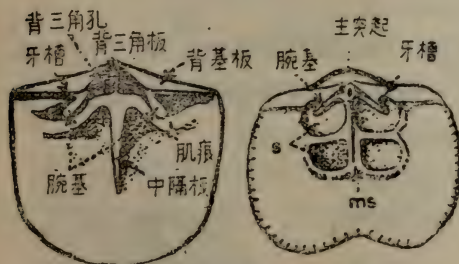 背三角孔
背三角板
牙槽
背基板
肌痕
腕基
中隔板
主突起
腕基
牙槽
s
ms